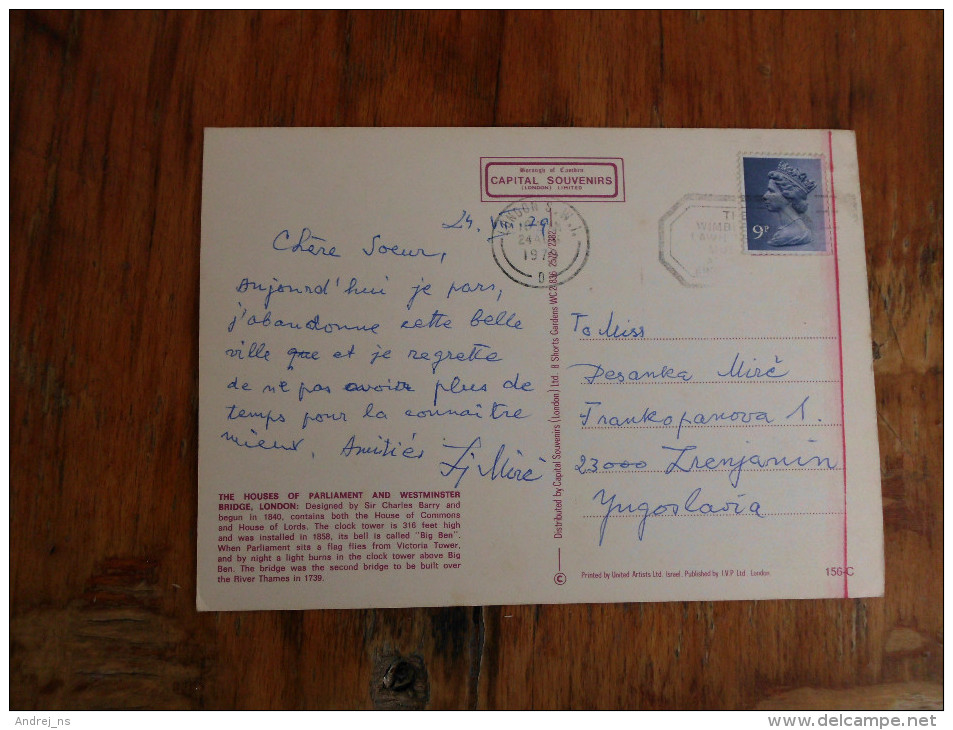 Borough of Camden
CAPITAL SOUVENIRS
(LONDON) LIMITED
LONDON S.W.1.
24
197
D
THE
WIMB
LAWN
9P
24. 79
Chère Soeur,
Aujourd'hui je pars,
j'abandonne cette belle
ville que et je regrette
de ne pas avoir plus de
temps pour la connaître
mieux, Amitiés
Mirč
To Miss
Desanka Mirč
Frankopanova 1.
23000 Zrenjanin
Yugoslavia
THE HOUSES OF PARLIAMENT AND WESTMINSTER
BRIDGE, LONDON: Designed by Sir Charles Barry and
begun in 1840, contains both the House of Commons
and House of Lords. The clock tower is 316 feet high
and was installed in 1858, its bell is called "Big Ben".
When Parliament sits a flag flies from Victoria Tower,
and by night a light burns in the clock tower above Big
Ben. The bridge was the second bridge to be built over
the River Thames in 1739.
© Distributed by Capital Souvenirs (London) Ltd. 8 Shorts Gardens WC2 836 2572/2382
Printed by United Artists Ltd. Israel. Published by I.V.P Ltd. London
156-C
Andrej_ns
www.delcampe.net